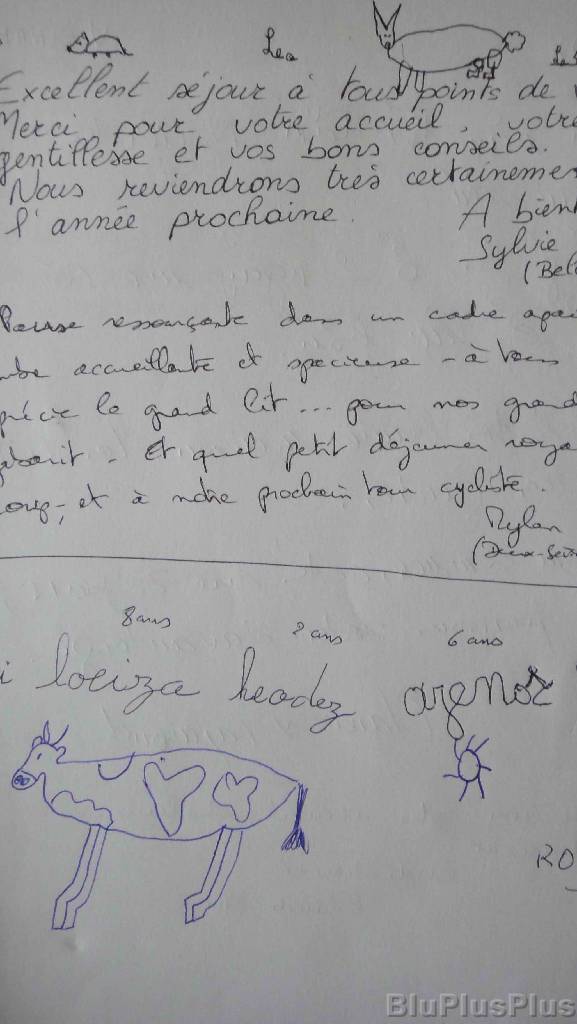 Lea
Excellent séjour à tous points de
Merci pour votre accueil, votre
gentillesse et vos bons conseils.
Nous reviendrons très certaineme
l'année prochaine.
A bient
Sylvie
(Bel
Pause ressourçante dans un cadre apai
accueillante et spacieuse - à tous
précie le grand lit... pour nos grand
gabarit - Et quel petit déjeuner roya
coup-, et à notre prochain tour cycliste.
Mylan
(Deux-Sèvr
8 ans 2 ans 6 ans
loeiza heodez azenor
RO
BluPlusPlus